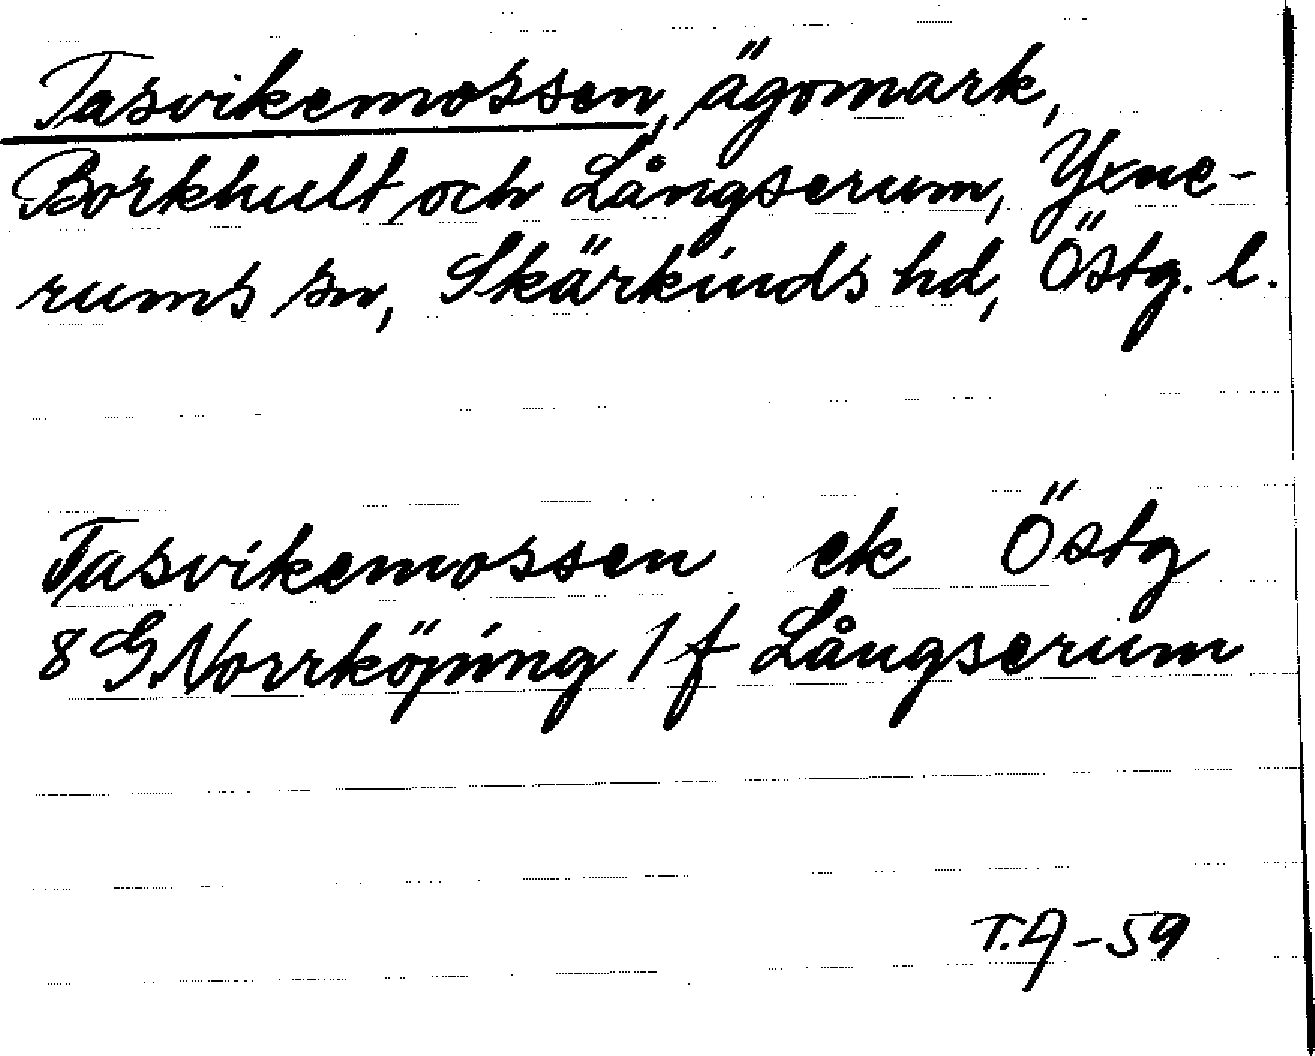 Tasvikemossen, ägomark,
Borkhult och Långserum, Yxne-
rums sn, Skärkinds hd, Östg. l.
Tasvikemossen ek Östg
8 G Norrköping 1 f Långserum
T.A-59